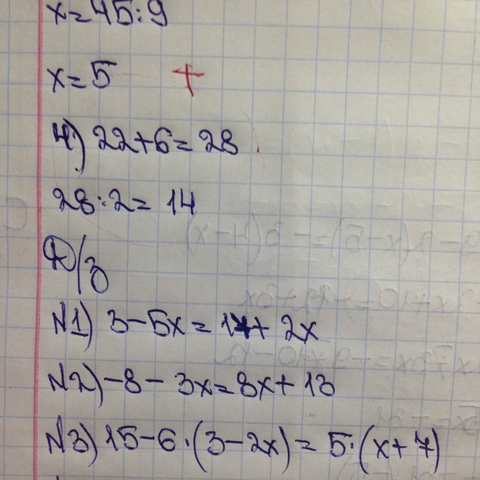 x=45:9
x=5 +
4) 22+6=28
28:2=14
Д/З
№1) 3-5x= + 2x
№2) -8-3x=8x+13
№3) 15-6·(3-2x)=5·(x+7)